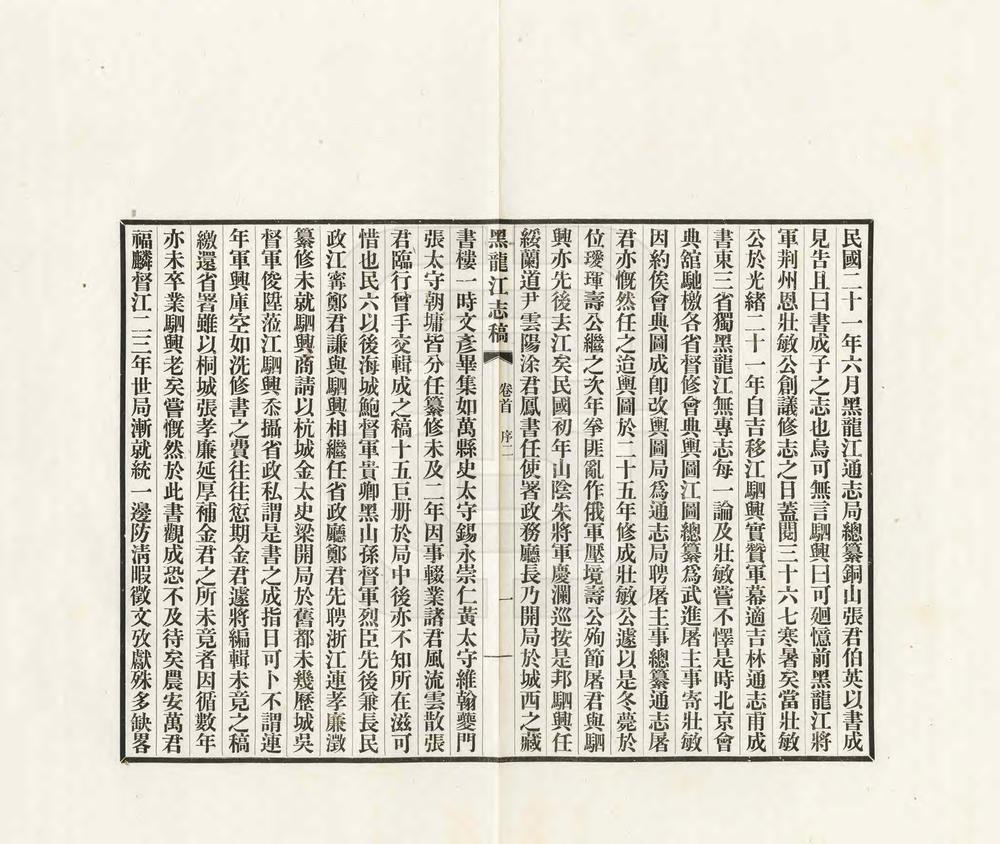 民國二十一年六月黑龍江通志局總纂銅山張君伯英以書成
見告且曰書成子之志也烏可無言駟興曰可廻憶前黑龍江將
軍荆州恩壯敏公創議修志之日蓋閱三十六七寒暑矣當壯敏
公於光緒二十一年自吉移江駟興實贊軍幕適吉林通志甫成
書東三省獨黑龍江無專志每一論及壯敏嘗不懌是時北京會
典舘馳檄各省督修會典輿圖江圖總纂爲武進屠主事寄壯敏
因約俟會典圖成卽改輿圖局爲通志局聘屠主事總纂通志屠
君亦慨然任之迨輿圖於二十五年修成壯敏公遽以是冬薨於
位瓊琿壽公繼之次年拳匪亂作俄軍壓境壽公殉節屠君與駟
興亦先後去江矣民國初年山陰朱將軍慶瀾巡按是邦駟興任
綏蘭道尹雲陽涂君鳳書任使署政務廳長乃開局於城西之藏
黑龍江志稿 卷首 序二 一
書樓一時文彥畢集如萬縣史太守錫永崇仁黃太守維翰夔門
張太守朝墉皆分任纂修未及二年因事輟業諸君風流雲散張
君臨行曾手交輯成之稿十五巨册於局中後亦不知所在滋可
惜也民六以後海城鮑督軍貴卿黑山孫督軍烈臣先後兼長民
政江甯鄭君謙與駟興相繼任省政廳鄭君先聘浙江連孝廉澂
纂修未就駟興商請以杭城金太史梁開局於舊都未幾歷城吳
督軍俊陞蒞江駟興忝攝省政私謂是書之成指日可卜不謂連
年軍興庫空如洗修書之費往往愆期金君遽將編輯未竟之稿
繳還省署雖以桐城張孝廉延厚補金君之所未竟者因循數年
亦未卒業駟興老矣嘗慨然於此書觀成恐不及待矣農安萬君
福麟督江二三年世局漸就統一邊防淸暇徵文攷獻殊多缺畧